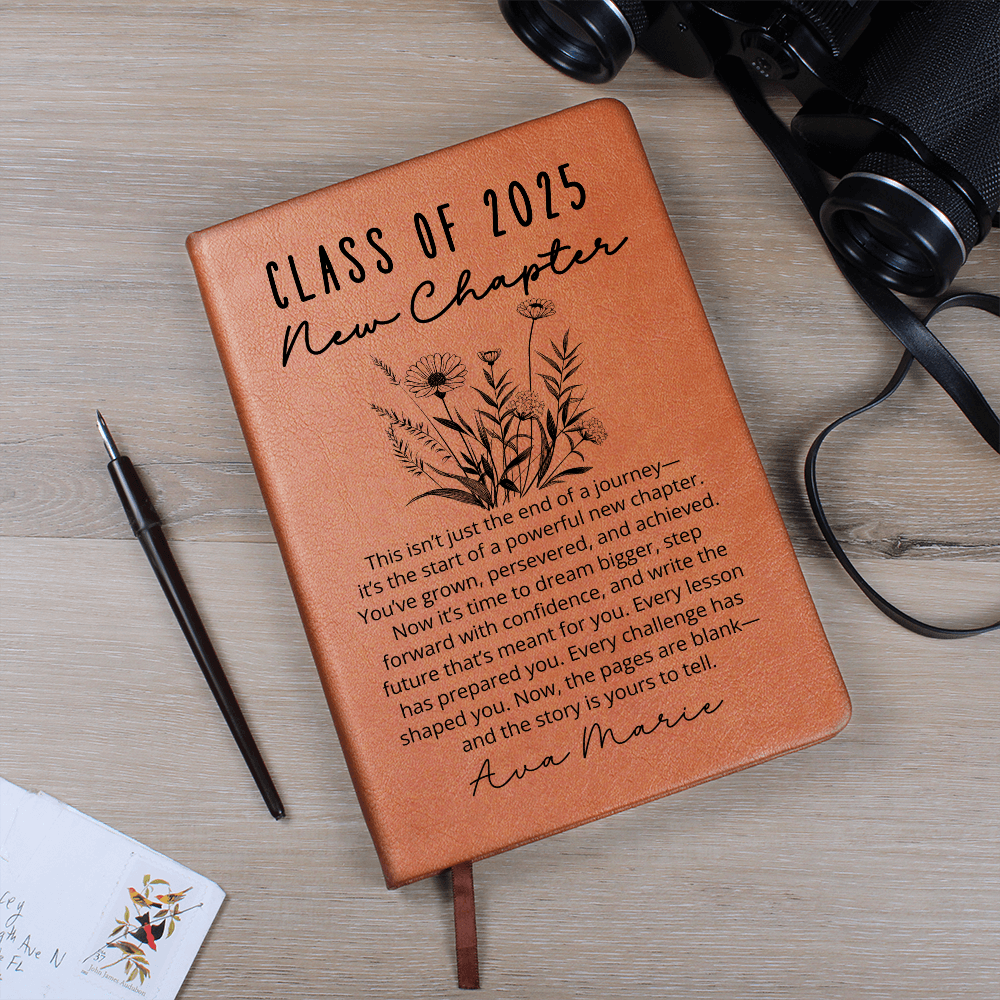 CLASS OF 2025
New Chapter
This isn't just the end of a journey—
it's the start of a powerful new chapter.
You've grown, persevered, and achieved.
Now it's time to dream bigger, step
forward with confidence, and write the
future that's meant for you. Every lesson
has prepared you. Every challenge has
shaped you. Now, the pages are blank—
and the story is yours to tell.
Ava Marie
Ave N
FL
37
John James Audubon